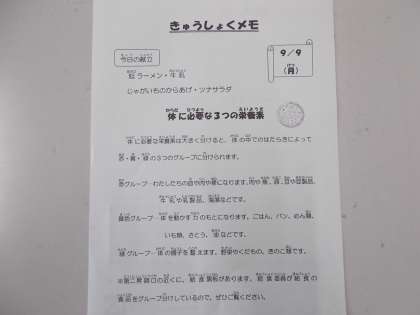 きゅうしょくメモ
今日の献立
9／9
（月）
ラーメン・牛乳
じゃがいものからあげ・ツナサラダ
体に必要な3つの栄養素
体に必要な栄養素は大きく分けると、体の中でのはたらきによって
赤・黄・緑の3つのグループに分けられます。
赤グループ…わたしたちの血や肉や骨になります。肉や魚、卵、豆や豆製品、
牛乳や乳製品、海藻などです。
黄色グループ…体を動かす力のもとになります。ごはん、パン、めん類、
いも類、さとう、油などです。
緑グループ…体の調子を整えます。野菜やくだもの、きのこ類です。
給食黒板があります。給食委員が給食の
食品をグループ分けしているので、ぜひご覧ください。